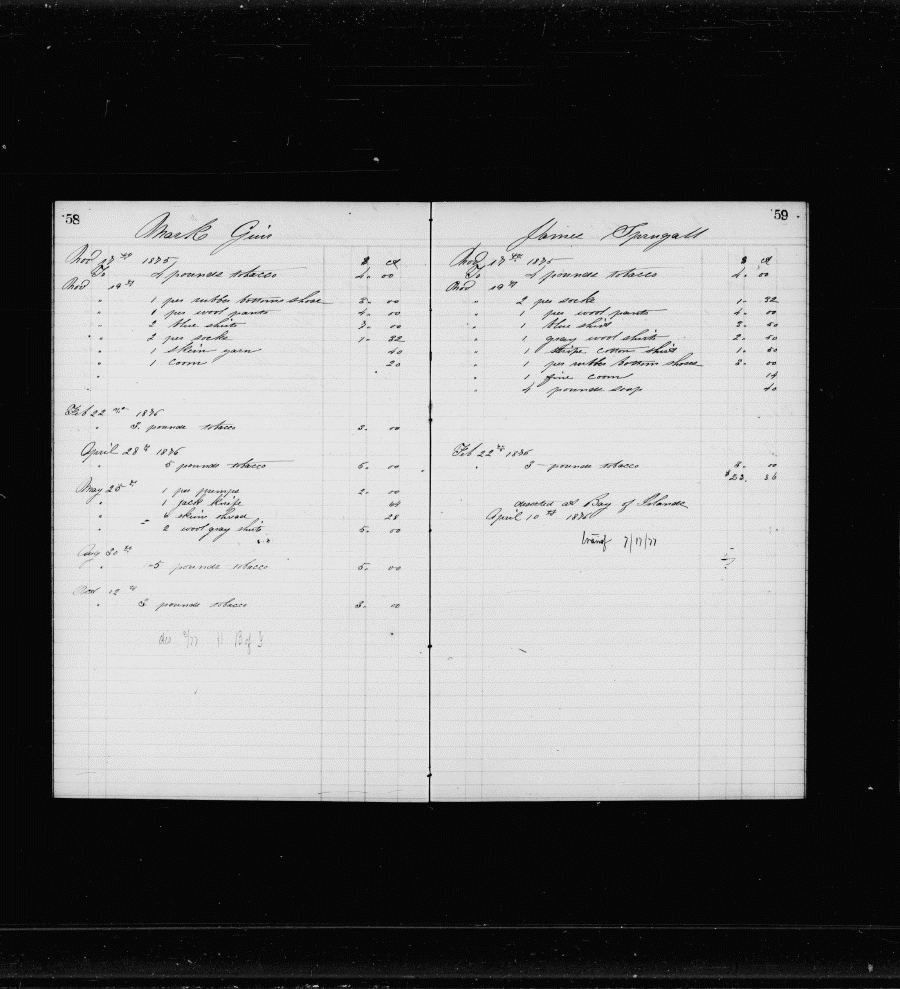 58
Mark Guin
Nov 17th 1875 $ ct
To 4 pounds tobacco 4. 00
Nov 19th
" 1 per rubber bottom shoes 3. 00
" 1 per wool pants 4. 00
" 2 blue shirts 3. 00
" 2 per socks 1. 32
" 1 skein yarn 40
" 1 coom 20
Feb 22nd 1876
" 3 pounds tobacco 3. 00
April 28th 1876
" 5 pounds tobacco 5. 00
May 25th 1 per pumps 2. 00
" 1 jack knife 64
" 6 skins thread 28
" 2 wool gray shirts 5. 00
Aug 30th
" 5 pounds tobacco 5. 00
Nov 12th
" 3 pounds tobacco 3. 00
B of I
59
James Sprngall
Nov 17th 1875 $ ct
To 4 pounds tobacco 4. 00
Nov 19th
" 2 per socks 1. 32
" 1 per wool pants 4. 00
" 1 blue shirt 3. 50
" 1 gray wool shirts 2. 50
" 1 stripe cotton shirt 1. 50
" 1 per rubber bottom shoes 3. 00
" 1 fine coom 14
" 4 pounds soap 40
Feb 22nd 1876
" 3 pounds tobacco 3. 00
$23. 36
deserted at Bay of Islands
April 10th 1876
7/17/77